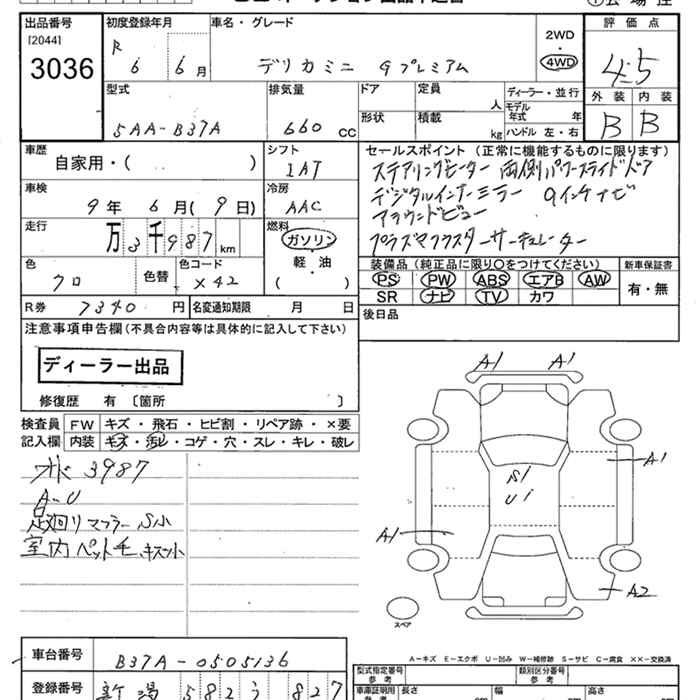 出品番号
[2044]
3036
初度登録年月
R 6 6 月
車名・グレード
デリカミニ Gプレミアム
2WD
・
4WD
評価点
4.5
外装 内装
B B
型式
5AA-B37A
排気量
660 CC
ドア
形状
定員
人
積載
kg
ディーラー・並行
モデル年式 年
ハンドル 左・右
車歴
自家用・( )
シフト
IAT
セールスポイント (正常に機能するものに限ります)
ステアリングヒーター 両側パワースライドドア
デジタルインナーミラー 9インチナビ
アラウンドビュー
プラズマクラスターサーキュレーター
車検
9年 6月(9日)
冷房
AAC
走行
万3千987km
燃料
ガソリン
軽・油
( )
色
クロ
色替
色コード
X42
装備品 (純正品に限り○をつけてください)
PS PW ABS エアB AW
SR ナビ TV カワ
新車保証書
有・無
R券 7340 円
名変通知期限 月 日
後日品
注意事項申告欄 (不具合内容等は具体的に記入して下さい)
ディーラー出品
修復歴 有 〔箇所 〕
検査員記入欄
FW キズ・飛石・ヒビ割・リペア跡・×要
内装 キズ・汚レ・コゲ・穴・スレ・キレ・破レ
3987
A-U
足廻りマフラーS小
室内ペット毛、キズ小
A1 A1
A1
S1
U1
A1
A2
スペア
A-キズ E-エクボ U-凹み W-補修跡 S-サビ C-腐食 XX-交換済
車台番号
B37A-0505136
登録番号
新潟 582 う 827
型式指定番号
参考
類別区分番号
参考
車庫証明用
長さ
幅
高さ